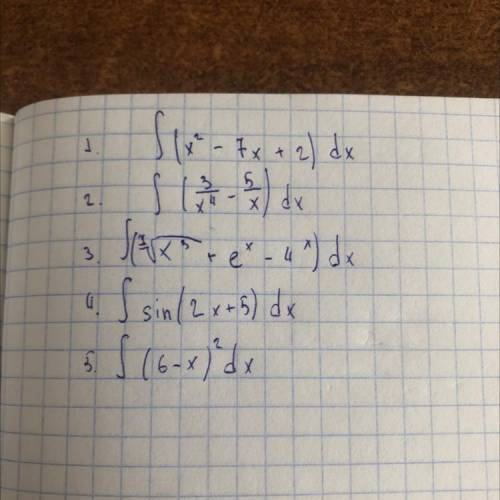 1. ∫(x² - 7x + 2) dx
2. ∫(3/x⁴ - 5/x) dx
3. ∫(⁷√x³ + eˣ - 4ˣ) dx
4. ∫ sin(2x+5) dx
5. ∫(6-x)² dx